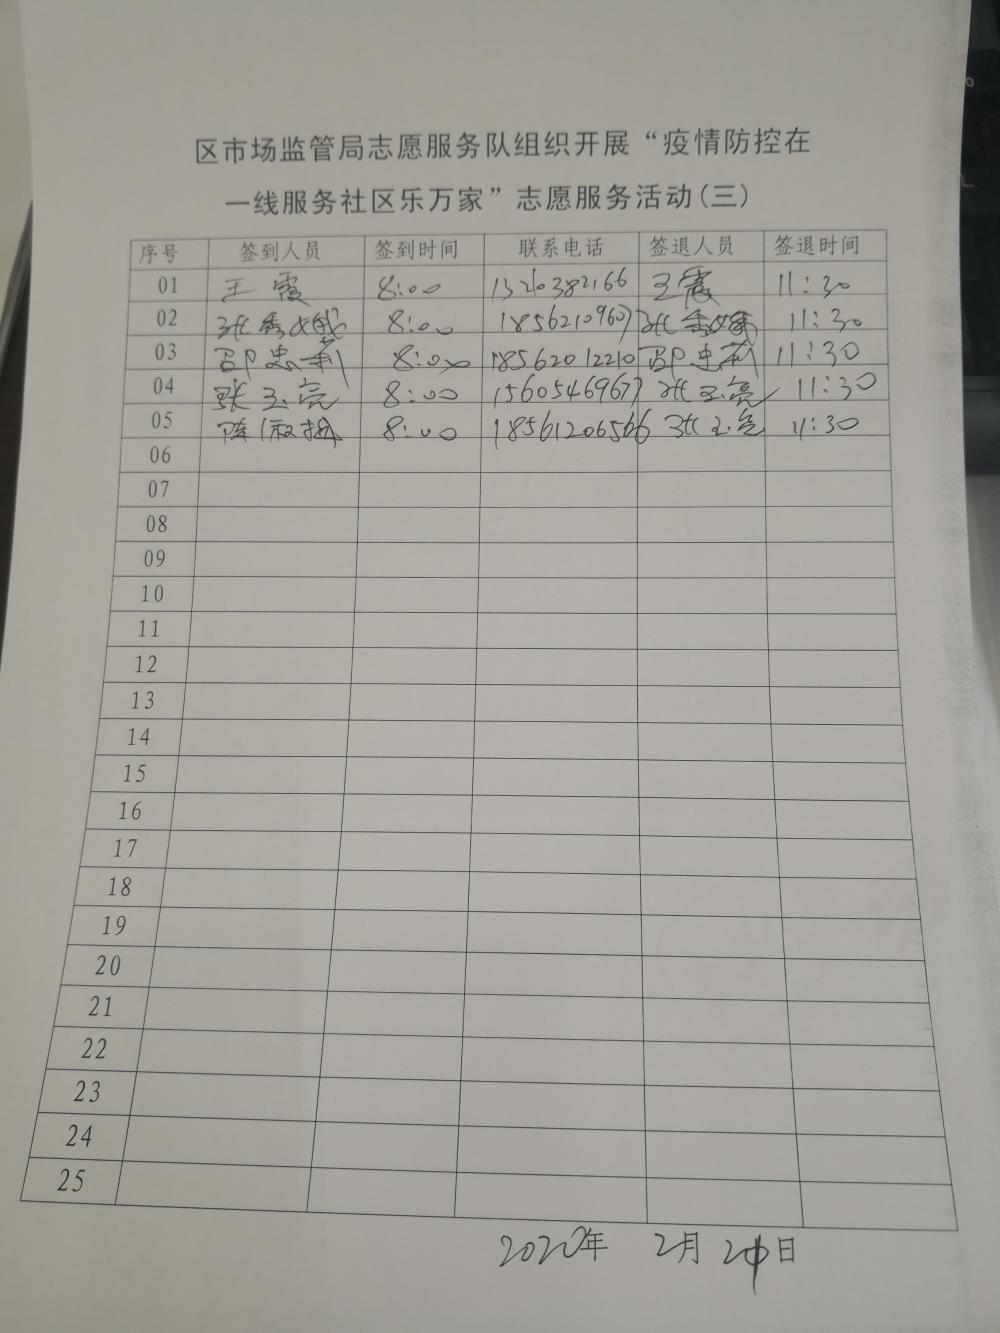 区市场监管局志愿服务队组织开展“疫情防控在
一线服务社区乐万家”志愿服务活动(三)
序号 签到人员 签到时间 联系电话 签退人员 签退时间
01 王霞 8:00 15210382166 王霞 11:30
02 张秀娥 8:00 18562109607 张秀娥 11:30
03 邵忠莉 8:00 18562012210 邵忠莉 11:30
04 张玉亮 8:00 15605469677 张玉亮 11:30
05 陈 8:00 18561206566 张玉亮 11:30
06
07
08
09
10
11
12
13
14
15
16
17
18
19
20
21
22
23
24
25
2020年 2月 日